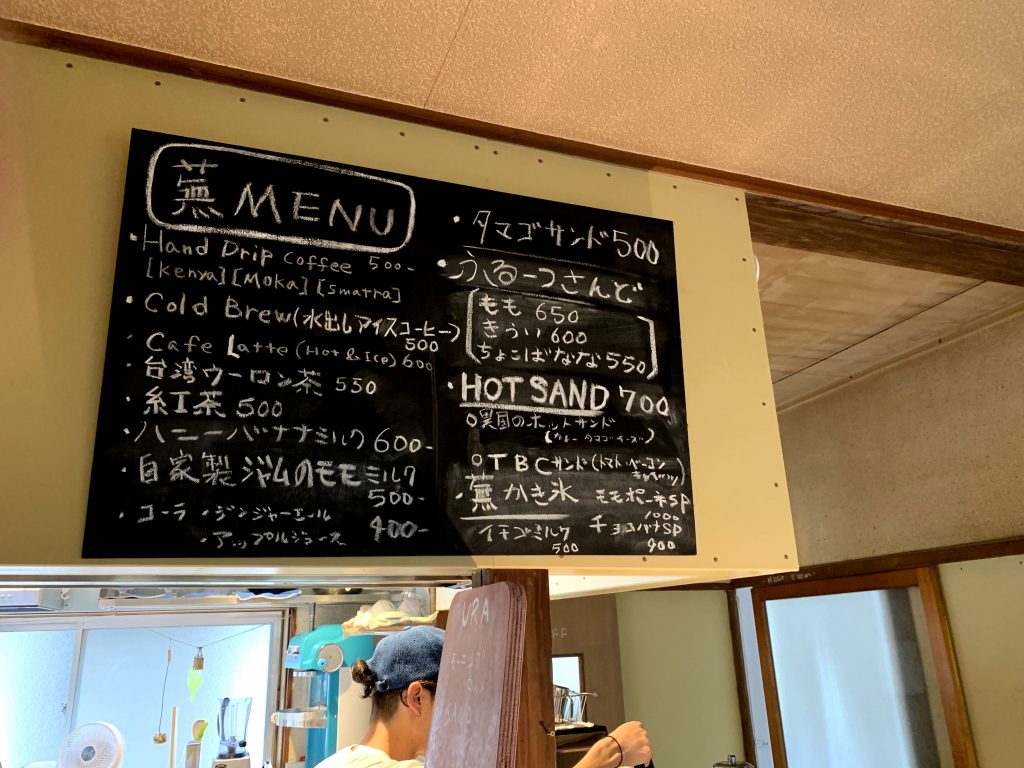 蕪 MENU
・Hand Drip coffee 500-
[kenya][Moka][Smatra]
・Cold Brew(水出しアイスコーヒー)
500
・Cafe Latte (Hot & Ice) 600
・台湾ウーロン茶 550
・紅茶 500
・ハニーバナナミルク 600-
・自家製ジャムのモモミルク
500-
・コーラ ・ジンジャーエール
・アップルジュース 400-
・タマゴサンド500
・ふるーつさんど
もも 650
きうい 600
ちょこばなな 550
・HOT SAND 700
のホットサンド
タマゴ チーズ)
○TBCサンド(トマト・ベーコン
・蕪 かき氷
イチゴミルク
500
モモボーネSP
1000
チョコバナSP
900
URA